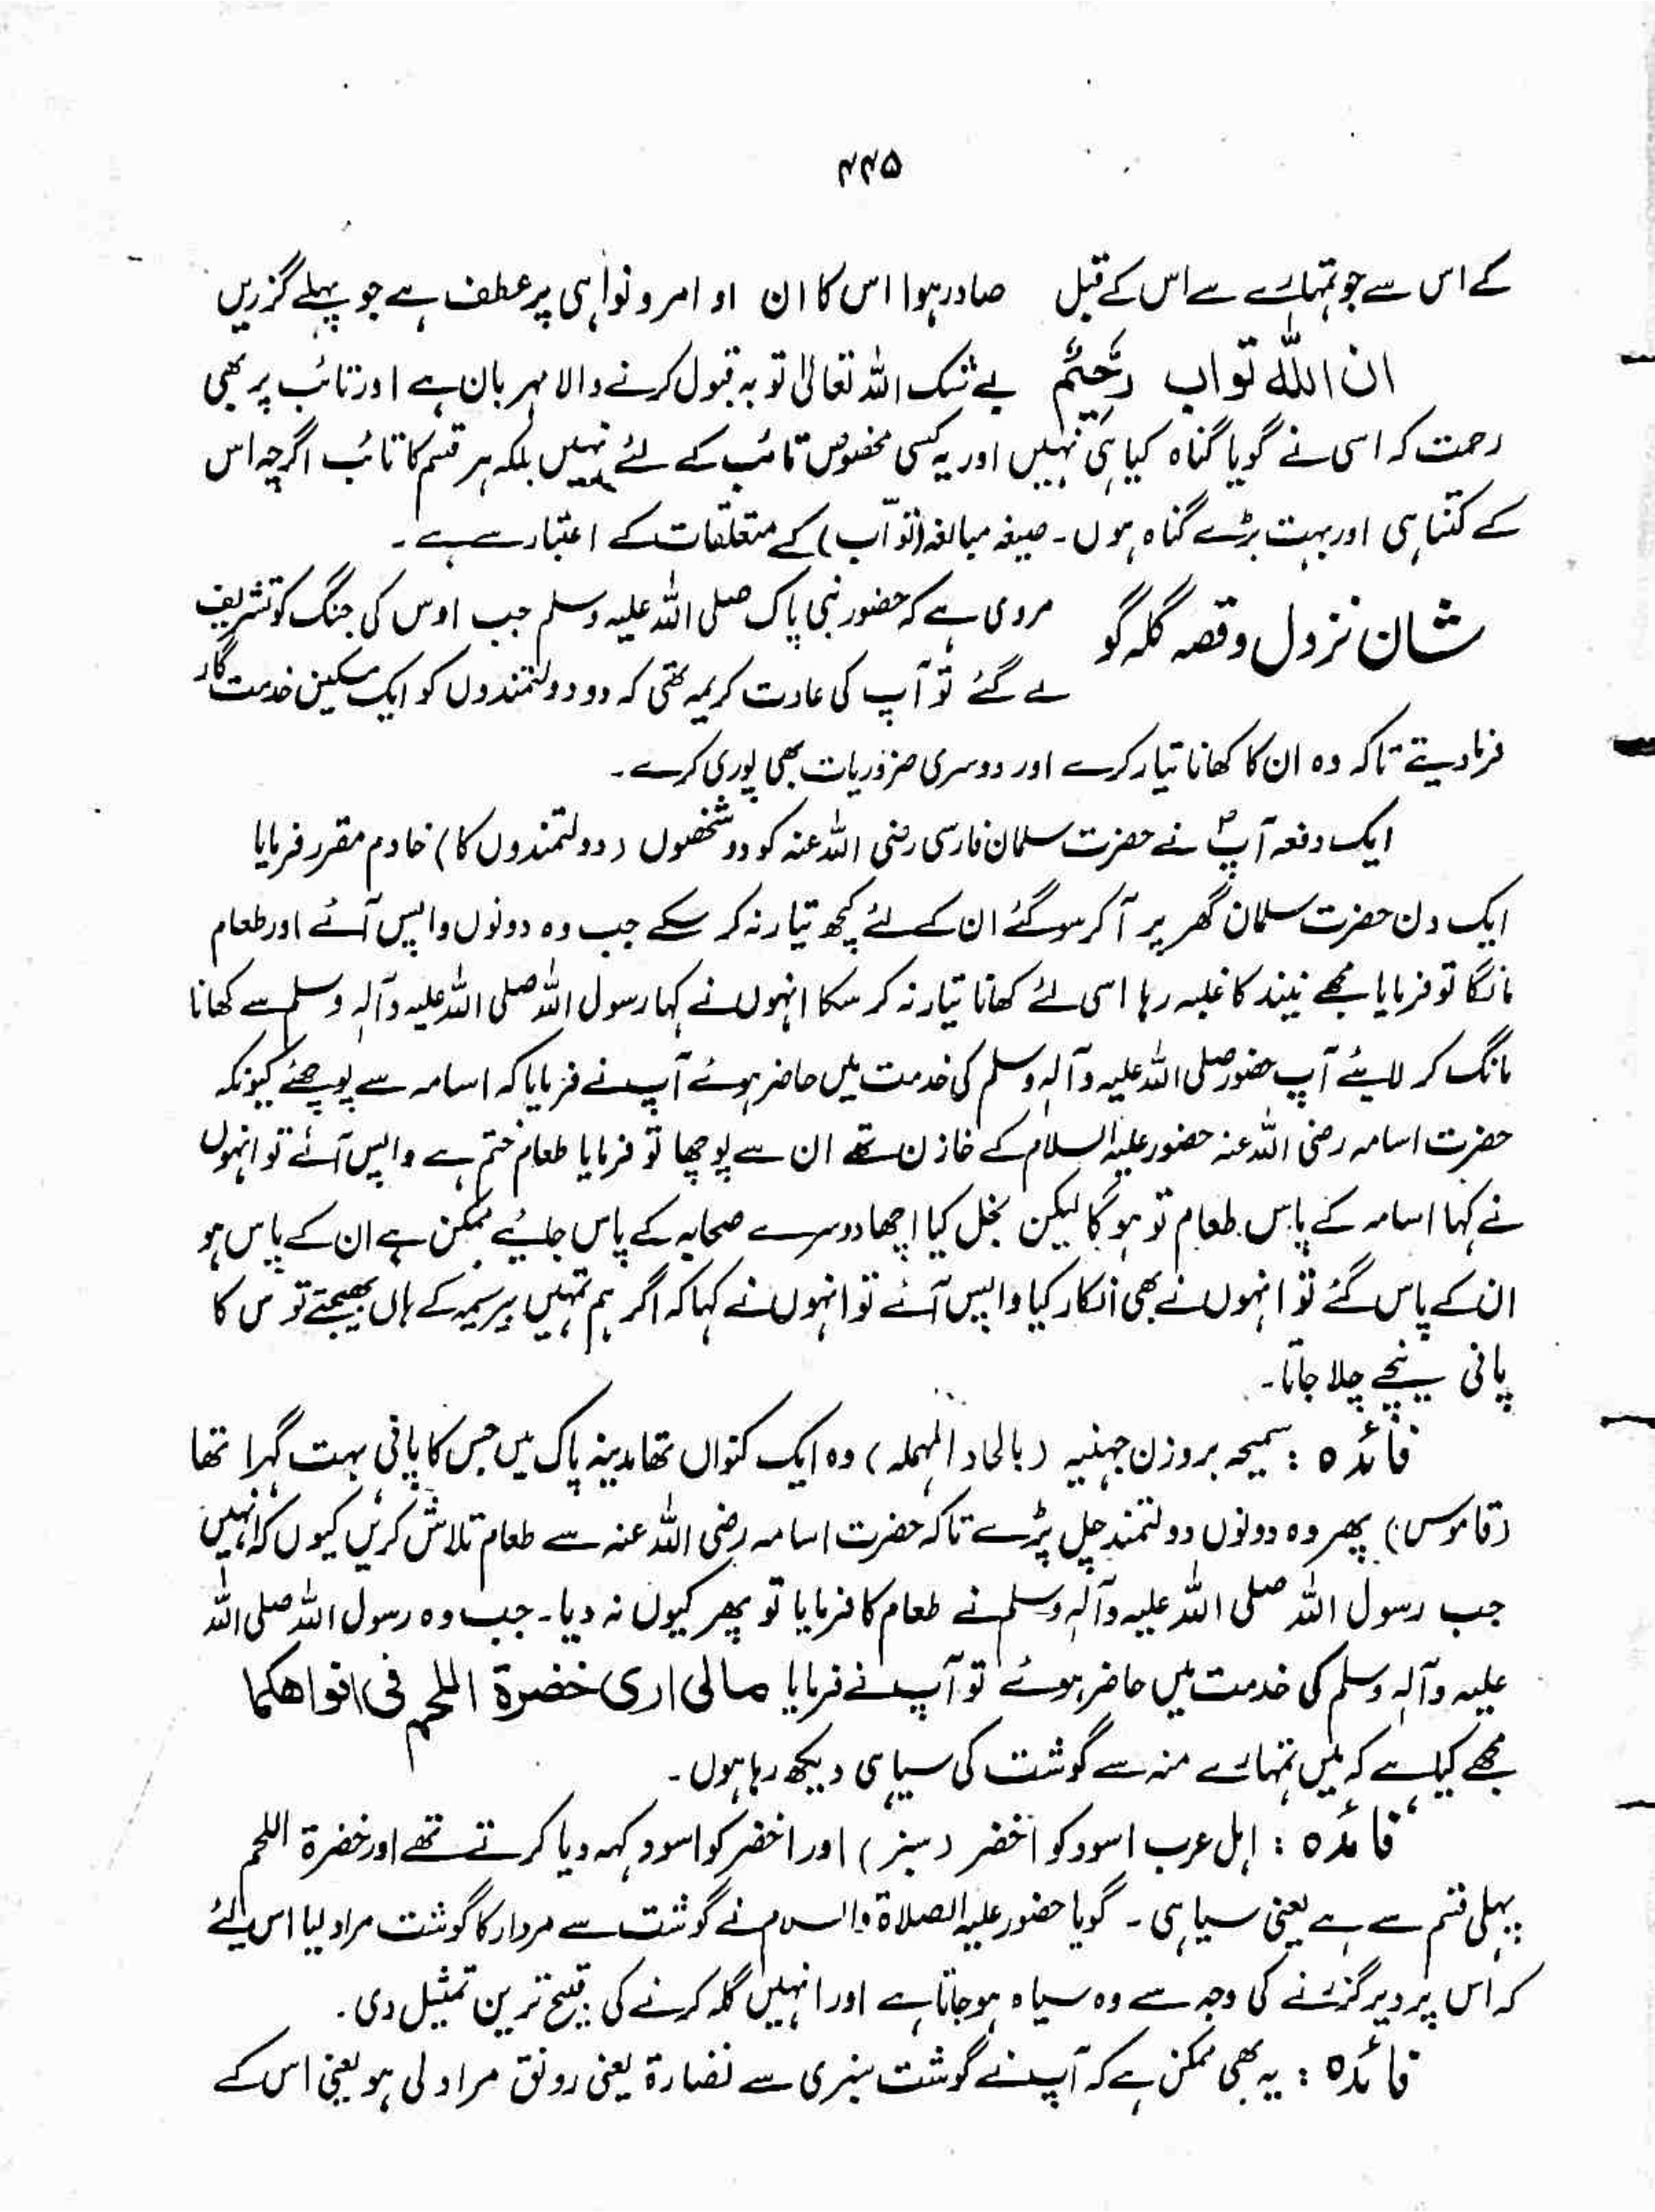 ۴۴۵
کے اس سے جو تمہارے سے اس کے قبل صادر ہوا اس کا ان او امر و نواہی پر عطف ہے جو پہلے گزریں
ان اللّٰہ تواب رحیم بے شک اللہ تعالیٰ توبہ قبول کرنے والا مہربان ہے اور تائب پر بھی
رحمت کہ اسی نے گویا گناہ کیا ہی نہیں اور یہ کسی مخصوص تائب کے لئے نہیں بلکہ ہر قسم کا تائب اگرچہ اس
کے کتنا ہی اور بہت بڑے گناہ ہوں۔ صیغہ مبالغہ (توّاب) کے متعلقات کے اعتبار سے ہے۔
شان نزول و قصہ گلہ گو مروی ہے کہ حضور نبی پاک صلی اللہ علیہ وسلم جب اوس کی جنگ کو تشریف
لے گئے تو آپ کی عادت کریمہ تھی کہ دو دولتمندوں کو ایک مسکین خدمت گار
فرما دیتے تاکہ وہ ان کا کھانا تیار کرے اور دوسری ضروریات بھی پوری کرے۔
ایک دفعہ آپؐ نے حضرت سلمان فارسی رضی اللہ عنہ کو دو شخصوں (دولتمندوں کا) خادم مقرر فرمایا
ایک دن حضرت سلمان گھر پر آ کر سو گئے ان کے لئے کچھ تیار نہ کر سکے جب وہ دونوں واپس آئے اور طعام
مانگا تو فرمایا مجھے نیند کا غلبہ رہا اسی لئے کھانا تیار نہ کر سکا انہوں نے کہا رسول اللہ صلی اللہ علیہ وآلہٖ وسلم سے کھانا
مانگ کر لایئے آپ حضور صلی اللہ علیہ وآلہٖ وسلم کی خدمت میں حاضر ہوئے آپ نے فرمایا کہ اسامہ سے پوچھئے کیونکہ
حضرت اسامہ رضی اللہ عنہ حضور علیہ السلام کے خازن تھے ان سے پوچھا تو فرمایا طعام ختم ہے واپس آئے تو انہوں
نے کہا اسامہ کے پاس طعام تو ہو گا لیکن بخل کیا اچھا دوسرے صحابہ کے پاس جایئے ممکن ہے ان کے پاس ہو
ان کے پاس گئے تو انہوں نے بھی انکار کیا واپس آئے تو انہوں نے کہا کہ اگر ہم تمہیں بیر سمیہ کے ہاں بھیجتے تو س کا
پانی نیچے چلا جاتا۔
فائدہ : سمیحہ بروزن جہنیہ (بالحاد المہملہ) وہ ایک کنواں تھا مدینہ پاک میں جس کا پانی بہت گہرا تھا
(قاموس) پھر وہ دونوں دولتمند چل پڑے تاکہ حضرت اسامہ رضی اللہ عنہ سے طعام تلاش کریں کیوں کہ انہیں
جب رسول اللہ صلی اللہ علیہ وآلہٖ وسلم نے طعام کا فرمایا تو پھر کیوں نہ دیا۔ جب وہ رسول اللہ صلی اللہ
علیہ وآلہٖ وسلم کی خدمت میں حاضر ہوئے تو آپ نے فرمایا مالی اری خضرۃ اللحم فی افواھکما
مجھے کیا ہے کہ میں تمہارے منہ سے گوشت کی سیاہی دیکھ رہا ہوں۔
فائدہ : اہل عرب اسود کو اخضر (سبز) اور اخضر کو اسود کہہ دیا کرتے تھے اور خضرۃ اللحم
پہلی قسم سے ہے یعنی سیاہی۔ گویا حضور علیہ الصلاۃ والسلام نے گوشت سے مردار کا گوشت مراد لیا اس لئے
کہ اس پر دیر گزرنے کی وجہ سے وہ سیاہ ہو جاتا ہے اور انہیں گلہ کرنے کی قبیح ترین تمثیل دی۔
فائدہ : یہ بھی ممکن ہے کہ آپ نے گوشت سبزی سے نضارۃ یعنی رونق مراد لی ہو یعنی اس کے